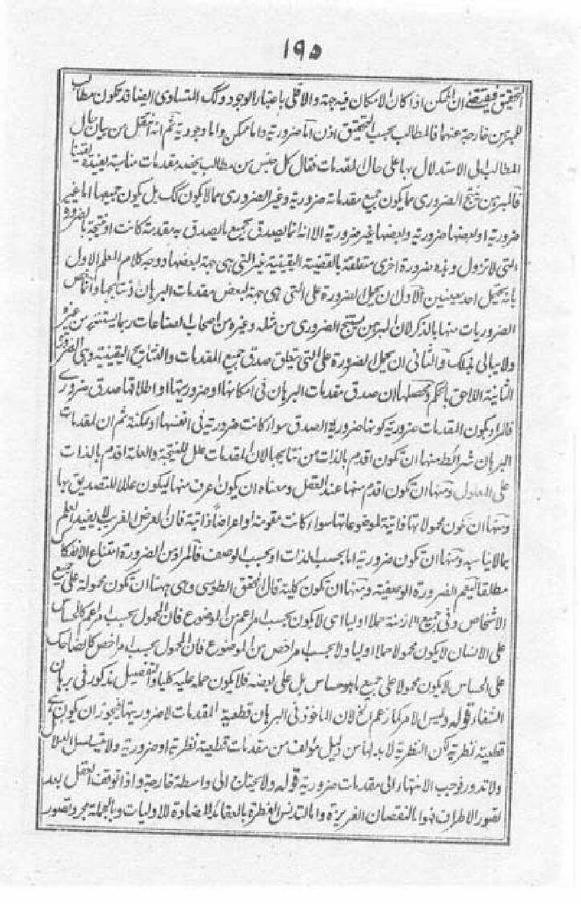 ١٩٥
التحقيق فيقتضے ان الممكن اذا كان الامكان فيه جهة والاقلى باعتبار الوجود وكك المتساوى ايضا قد تكون مطالب
للمبرهن خارجة عنهما فالمطالب بحسب التحقيق اذن اما ضرورية واما ممكن واما وجودية ثم انه انتقل من بيان حال
المطالب الى الاستدلال بها على حال المقدمات فقال كل جنس من مطالب يخصه مقدمات مناسبة يفيده يقينا
فالمبرهن ينتج الضرورى مما يكون جميع مقدماته ضرورية وغير الضرورى مما لا يكون كك بل يكون جميعها اما غير
ضرورية او بعضها ضرورية وبعضها غير ضرورية الا انه انما يصدق بجميع ما يصدق به مقدمة كانت او نتيجة بالضرورة
التى لا تزول وهذه ضرورة اخرى متعلقة بالقضية اليقينية غير التى هى جهة لبعضها ووجه كلام المعلم الاول
بانه يحتمل احد معنيين الاول ان يحمل الضرورة على التى هى جهة لبعض مقدمات البرهان ونتايجها وانما خص
الضروريات منها بالذكر لان المبرهن يستنتج الضرورى من مثله وغيره من اصحاب الصناعات ربما يستنتجه من غيره
ولا يبالى بذلك والثانى ان يحمل الضرورة على التى يتعلق صدق جميع المقدمات والنتايج اليقينية وهى الضرورة
الثانية اللاحق بالحكم ومحصلها ان صدق مقدمات البرهان فى امكانها او ضروريتها او اطلاقها صدق ضرورى
فالمراد بكون المقدمات ضرورية كونها ضرورية الصدق سواء كانت ضرورية فى انفسها او ممكنة ثم ان لمقدمات
البرهان شرائط منها ان تكون اقدم بالذات من نتايجها لان المقدمات علل للنتيجة والعلة اقدم بالذات
على المعلول ومنها ان تكون اقدم منها عند العقل ومعناه ان يكون اعرف منها ليكون عللا للتصديق بها
ومنها ان تكون محمولاتها ذاتية لموضوعاتها سواء كانت مقومة او اعراضا ذاتية فان العرض الغريب لا يفيد العلم
بما لا يناسبه ومنها ان تكون ضرورية اما بحسب الذات او بحسب الوصف فالمراد من الضرورة امتناع الانفكاك
مطلقا ليعم الضرورة الوصفية ومنها ان تكون كلية قال المحقق الطوسى وهى ههنا ان تكون محمولة على جميع
الاشخاص وفى جميع الازمنة حملا اوليا اى لا يكون بحسب امر اعم من الموضوع فان المحمول بحسب امر اعم كالحساس
على الانسان لا يكون محمولا حملا اوليا ولا بحسب امر اخص من الموضوع فان المحمول بحسب امر اخص كالضاحك
على الحساس لا يكون محمولا على جميع ما هو حساس بل على بعضه فلا يكون حمله عليه كليا والتفصيل مذكور فى برهان
الشفاء قوله وليس الامر كما زعم الخ لان الماخوذ فى البرهان قطعية المقدمات لا ضروريتها فيجوز ان يكون
قطعية نظرية لكن النظرية لا بد لها من دليل مؤلف من مقدمات قطعية نظرية او ضرورية ولا يتسلسل
ولا تدور فوجب الانتهاء الى مقدمات ضرورية قوله ولا يحتاج الى واسطة خارجة واذا توقف العقل بعد
تصور الاطراف فهو اما لنقصان الغريزة واما لتدنس الفطرة بالعقائد المضادة للاوليات وبالجملة مجرد تصور